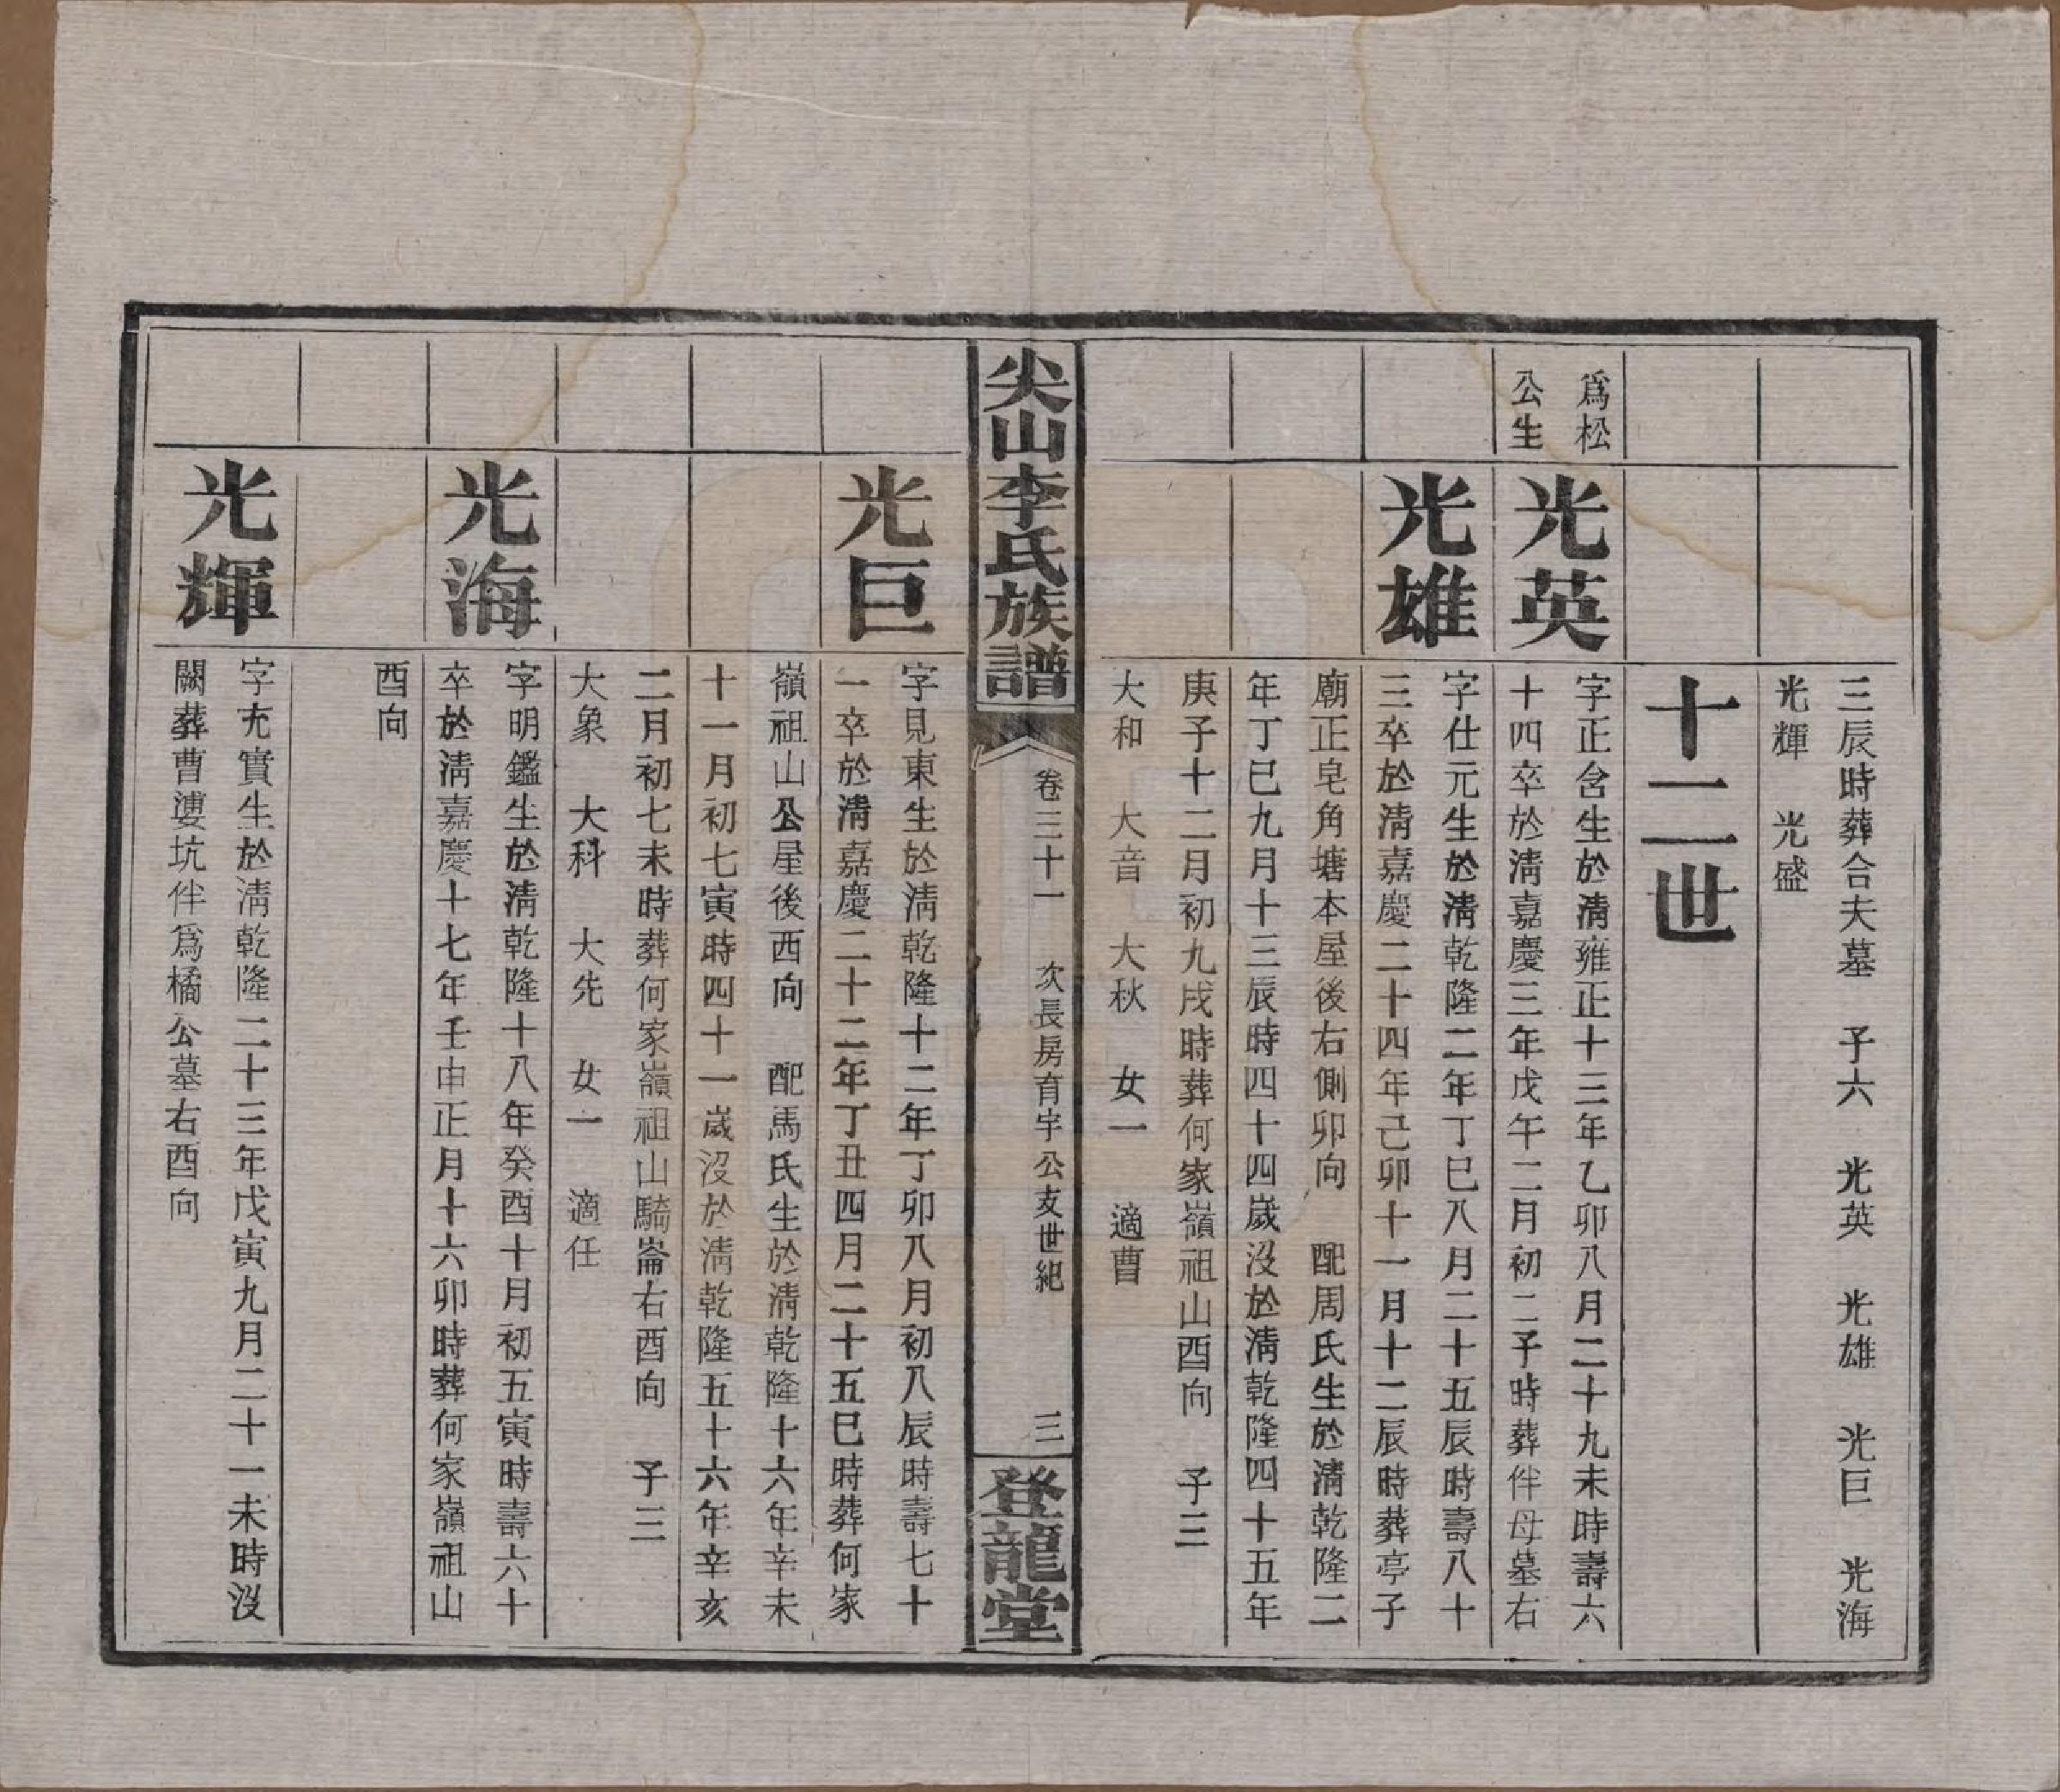 三辰時葬合夫墓　子六　光英　光雄　光巨　光海
光輝　光盛
十二世
爲松
公生
光英
字正含生於淸雍正十三年乙卯八月二十九未時壽六
十四卒於淸嘉慶三年戊午二月初二子時葬伴母墓右
光雄
字仕元生於淸乾隆二年丁巳八月二十五辰時壽八十
三卒於淸嘉慶二十四年己卯十一月十二辰時葬亭子
廟正皂角塘本屋後右側卯向　配周氏生於淸乾隆二
年丁巳九月十三辰時四十四歲沒於淸乾隆四十五年
庚子十二月初九戌時葬何家嶺祖山酉向　子三
大和　大音　大秋　女一　適曹
尖山李氏族譜
卷三十一　次長房育宇公支世紀　三
登龍堂
光巨
字見東生於淸乾隆十二年丁卯八月初八辰時壽七十
一卒於淸嘉慶二十二年丁丑四月二十五巳時葬何家
嶺祖山公屋後西向　配馬氏生於淸乾隆十六年辛未
十一月初七寅時四十一歲沒於淸乾隆五十六年辛亥
二月初七未時葬何家嶺祖山騎崙右酉向　子三
大象　大科　大先　女一　適任
光海
字明鑑生於淸乾隆十八年癸酉十月初五寅時壽六十
卒於淸嘉慶十七年壬申正月十六卯時葬何家嶺祖山
酉向
光輝
字充實生於淸乾隆二十三年戊寅九月二十一未時沒
闕葬曹婆坑伴爲橘公墓右酉向